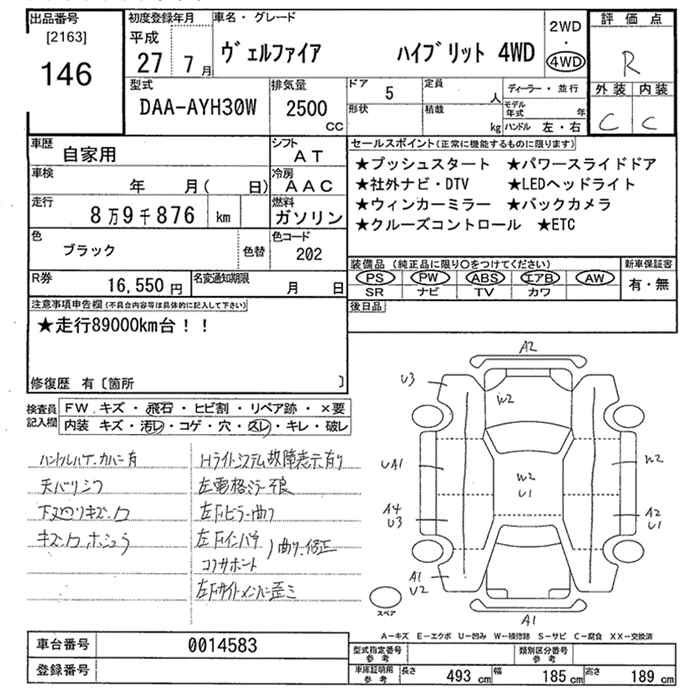 出品番号
[2163]
146
初度登録年月
平成
27 7月
車名・グレード
ヴェルファイア ハイブリット 4WD
2WD
・
4WD
評価点
R
外装 内装
C C
型式
DAA-AYH30W
排気量
2500
CC
ドア 5
形状
定員 人
積載 kg
ディーラー・並行
モデル年式 年
ハンドル 左・右
車歴
自家用
シフト
AT
車検
年 月( 日)
冷房
AAC
走行
8万9千876 km
燃料
ガソリン
色
ブラック
色替
色コード
202
R券
16,550円
名変通知期限
月 日
セールスポイント(正常に機能するものに限ります)
★プッシュスタート ★パワースライドドア
★社外ナビ・DTV ★LEDヘッドライト
★ウィンカーミラー ★バックカメラ
★クルーズコントロール ★ETC
装備品(純正品に限り○をつけてください)
新車保証書
PS PW ABS エアB AW
SR ナビ TV カワ
有・無
後日品
注意事項申告欄(不具合内容等は具体的に記入して下さい)
★走行89000km台!!
修復歴 有〔箇所 〕
検査員記入欄
FW キズ・飛石・ヒビ割・リペア跡・×要
内装 キズ・汚レ・コゲ・穴・スレ・キレ・破レ
天バリシワ
キズ
Hライトシステム故障表示有り
左電格ミラー不良
左Fピラー曲り
左Fインパネ
曲り、修正
コアサポート
左Fサイドメンバー歪ミ
A2
U3
W2
UA1
W2
U1
W2
A4
U3
A2
U1
A1
U2
A1
U2
A1
スペア
A−キズ E−エクボ U−凹み W−補修跡 S−サビ C−腐食 XX−交換済
車台番号 0014583
登録番号
型式指定番号
参考
類別区分番号
参考
車庫証明用
参考
長さ 493 cm
幅 185 cm
高さ 189 cm